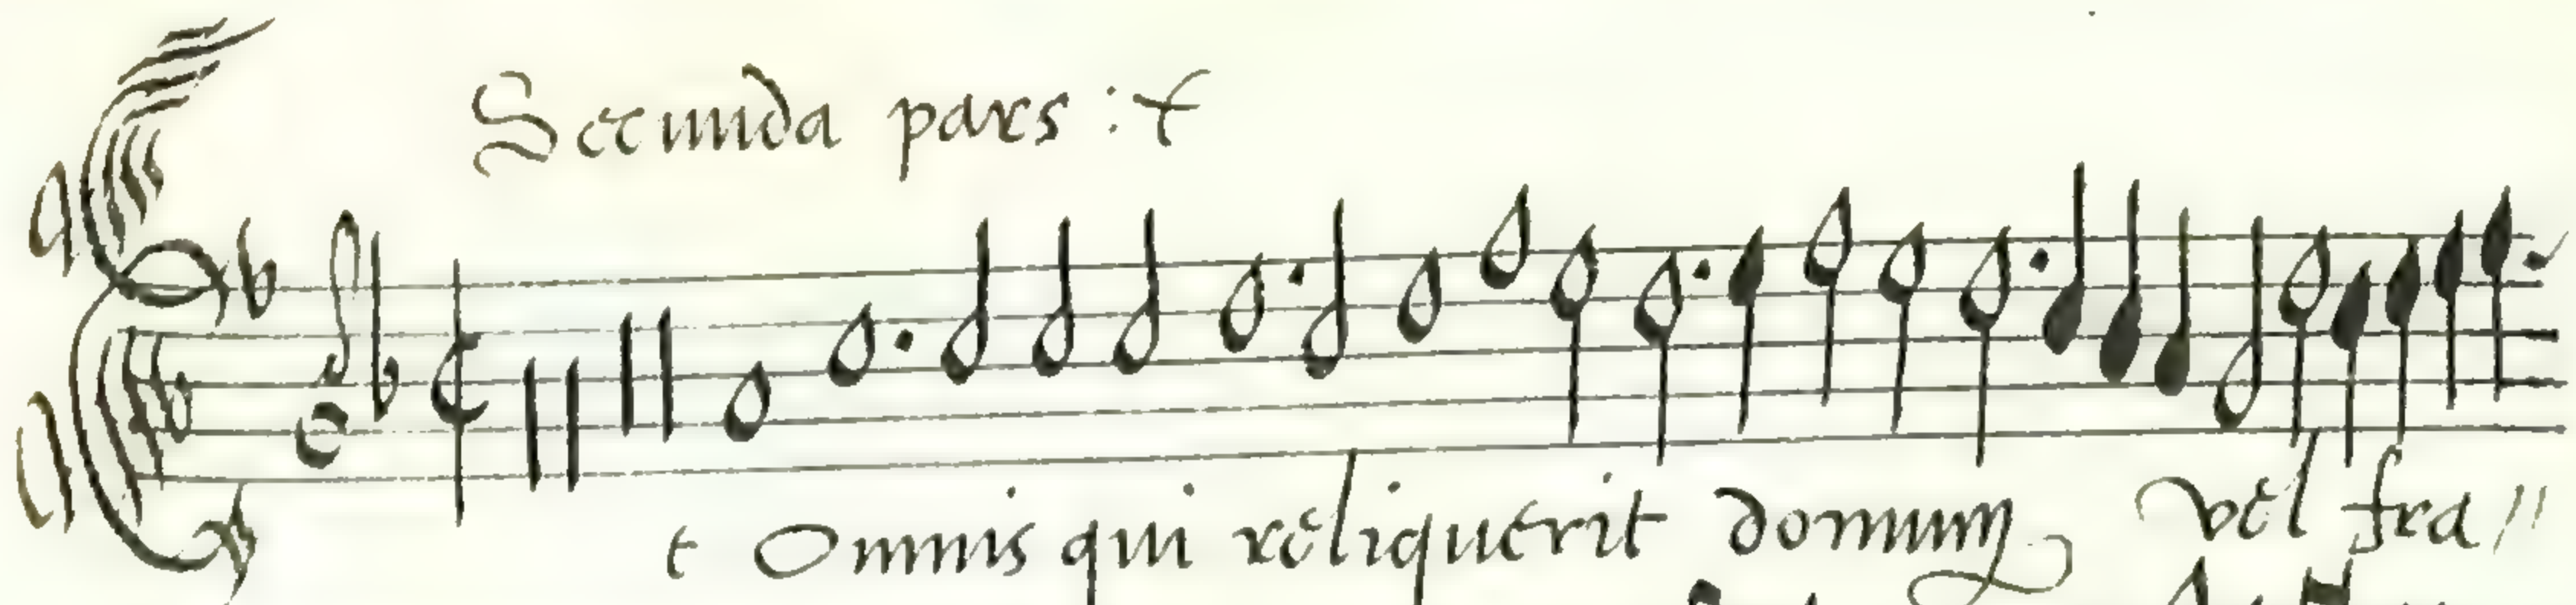 Secunda pars :+
Et Omnis qui reliquerit domum vel fra//